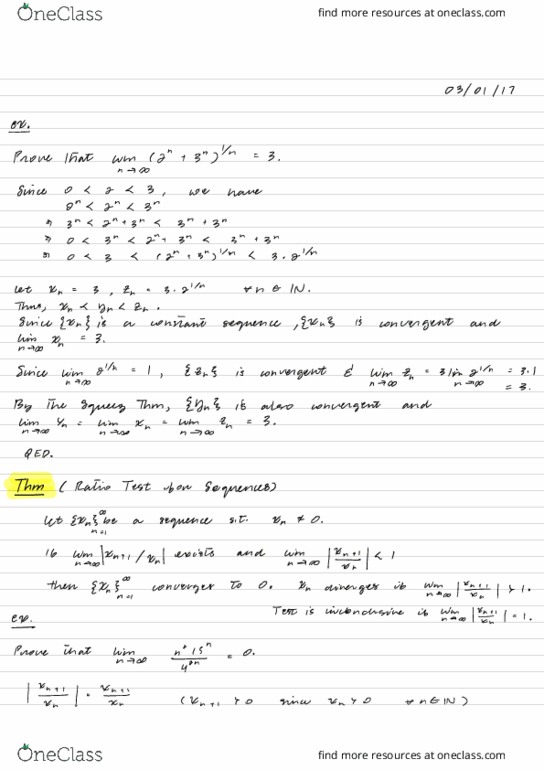 OneClass
find more resources at oneclass.com
03/01/17
ex.
Prove that lim n→∞ (2ⁿ + 3ⁿ)^(1/n) = 3.
Since 0 < 2 < 3, we have
0ⁿ < 2ⁿ < 3ⁿ
⇒ 3ⁿ < 2ⁿ + 3ⁿ < 3ⁿ + 3ⁿ
⇒ 0 < 3ⁿ < 2ⁿ + 3ⁿ < 3ⁿ + 3ⁿ
⇒ 0 < 3 < (2ⁿ + 3ⁿ)^(1/n) < 3 · 2^(1/n)
Let xₙ = 3, zₙ = 3 · 2^(1/n) ∀ n ∈ IN.
Thus, xₙ < yₙ < zₙ.
Since {xₙ} is a constant sequence, {xₙ} is convergent and
lim n→∞ xₙ = 3.
Since lim n→∞ 2^(1/n) = 1, {zₙ} is convergent & lim n→∞ zₙ = 3 lim n→∞ 2^(1/n) = 3·1
= 3.
By The Squeez Thm, {yₙ} is also convergent and
lim n→∞ yₙ = lim n→∞ xₙ = lim n→∞ zₙ = 3.
QED.
Thm (Ratio Test for Sequences)
Let {xₙ}^∞ n=1 be a sequence s.t. xₙ ≠ 0.
If lim n→∞ |xₙ₊₁/xₙ| exists and lim n→∞ |xₙ₊₁/xₙ| < 1
then {xₙ}^∞ n=1 converges to 0. xₙ diverges if lim n→∞ |xₙ₊₁/xₙ| > 1.
Test is inconclusive if lim n→∞ |xₙ₊₁/xₙ| = 1.
ex.
Prove that lim n→∞ 15ⁿ = 0.
|xₙ₊₁/xₙ| = xₙ₊₁/xₙ (xₙ₊₁ > 0 since xₙ > 0 ∀ n ∈ IN)
OneClass
find more resources at oneclass.com